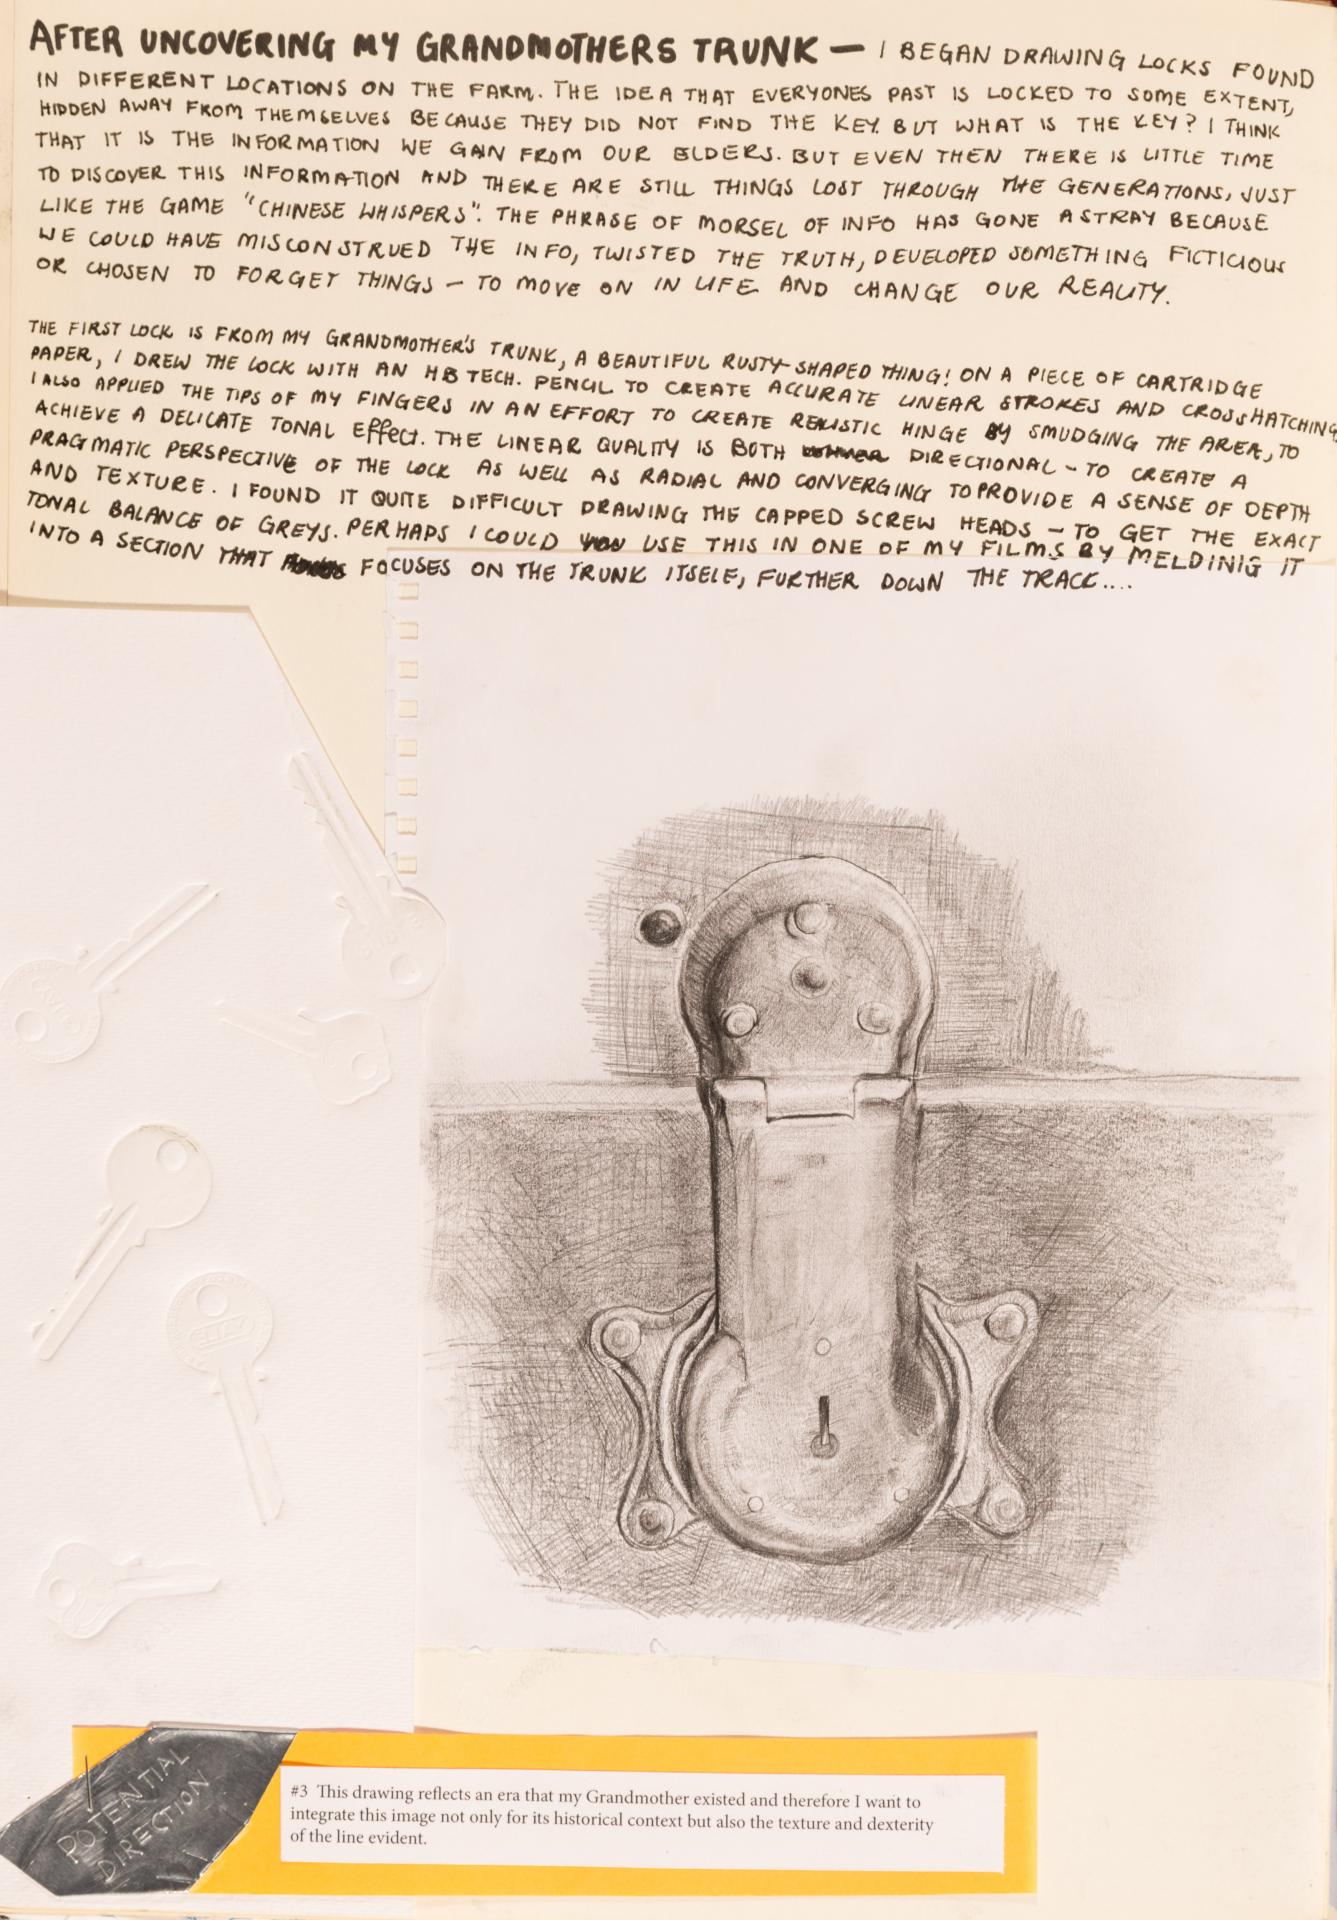 AFTER UNCOVERING MY GRANDMOTHERS TRUNK — I BEGAN DRAWING LOCKS FOUND
IN DIFFERENT LOCATIONS ON THE FARM. THE IDEA THAT EVERYONES PAST IS LOCKED TO SOME EXTENT,
HIDDEN AWAY FROM THEMSELVES BECAUSE THEY DID NOT FIND THE KEY. BUT WHAT IS THE KEY? I THINK
THAT IT IS THE INFORMATION WE GAIN FROM OUR ELDERS. BUT EVEN THEN THERE IS LITTLE TIME
TO DISCOVER THIS INFORMATION AND THERE ARE STILL THINGS LOST THROUGH THE GENERATIONS, JUST
LIKE THE GAME "CHINESE WHISPERS". THE PHRASE OF MORSEL OF INFO HAS GONE ASTRAY BECAUSE
WE COULD HAVE MISCONSTRUED THE INFO, TWISTED THE TRUTH, DEVELOPED SOMETHING FICTICIOUS
OR CHOSEN TO FORGET THINGS — TO MOVE ON IN LIFE AND CHANGE OUR REALITY.
THE FIRST LOCK IS FROM MY GRANDMOTHER'S TRUNK, A BEAUTIFUL RUSTY-SHAPED THING! ON A PIECE OF CARTRIDGE
PAPER, I DREW THE LOCK WITH AN HB TECH. PENCIL TO CREATE ACCURATE LINEAR STROKES AND CROSSHATCHING.
I ALSO APPLIED THE TIPS OF MY FINGERS IN AN EFFORT TO CREATE REALISTIC HINGE BY SMUDGING THE AREA, TO
ACHIEVE A DELICATE TONAL EFFECT. THE LINEAR QUALITY IS BOTH DIRECTIONAL - TO CREATE A
PRAGMATIC PERSPECTIVE OF THE LOCK AS WELL AS RADIAL AND CONVERGING TO PROVIDE A SENSE OF DEPTH
AND TEXTURE. I FOUND IT QUITE DIFFICULT DRAWING THE CAPPED SCREW HEADS — TO GET THE EXACT
TONAL BALANCE OF GREYS. PERHAPS I COULD USE THIS IN ONE OF MY FILMS BY MELDINIG IT
INTO A SECTION THAT FOCUSES ON THE TRUNK ITSELF, FURTHER DOWN THE TRACK....
POTENTIAL
DIRECTION
#3 This drawing reflects an era that my Grandmother existed and therefore I want to
integrate this image not only for its historical context but also the texture and dexterity
of the line evident.